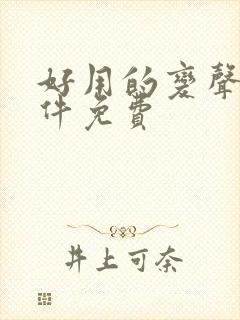 好用的变聲
件免費
井上可奈